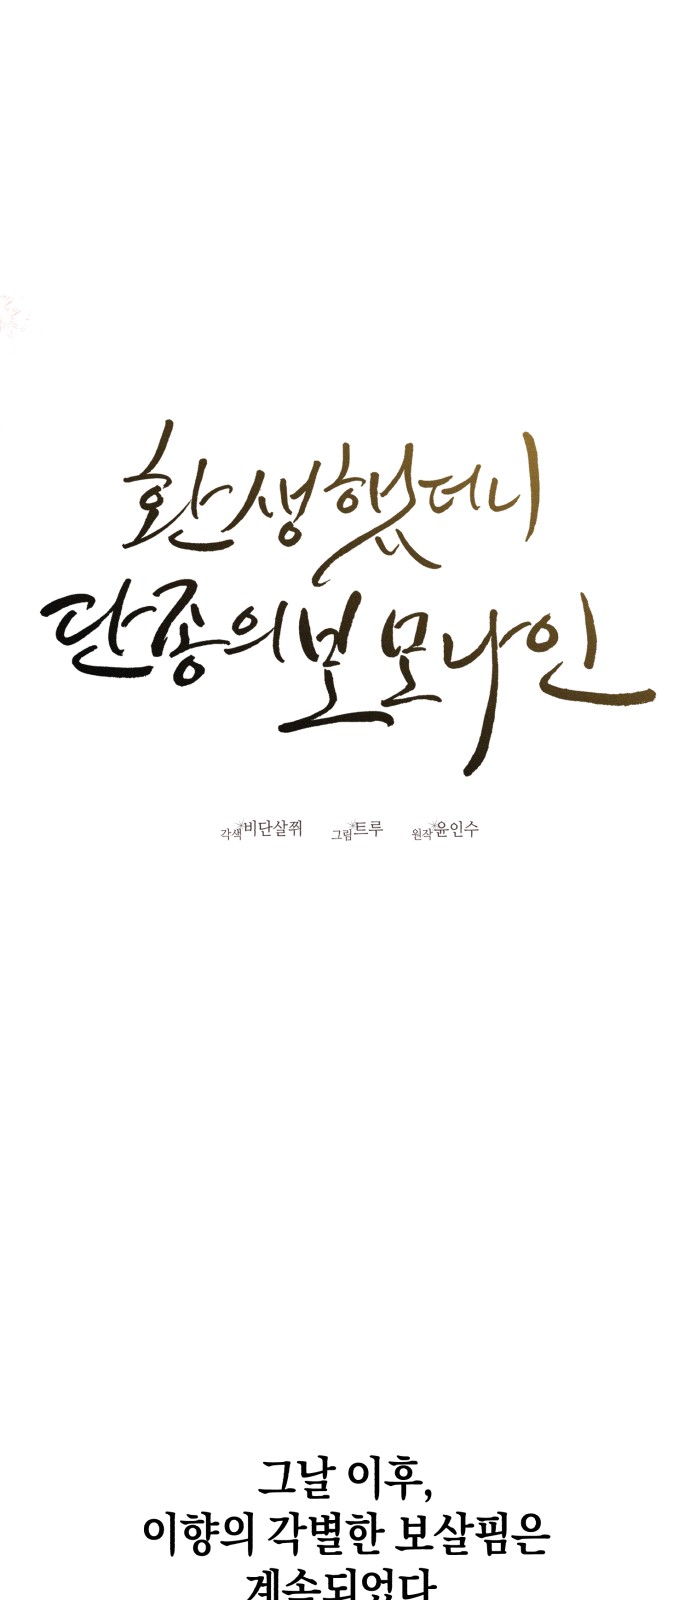 환생했더니
단종의 보모나인
각색 비단살쮜 그림 트루 원작 윤인수
그날 이후,
이향의 각별한 보살핌은
계속되었다